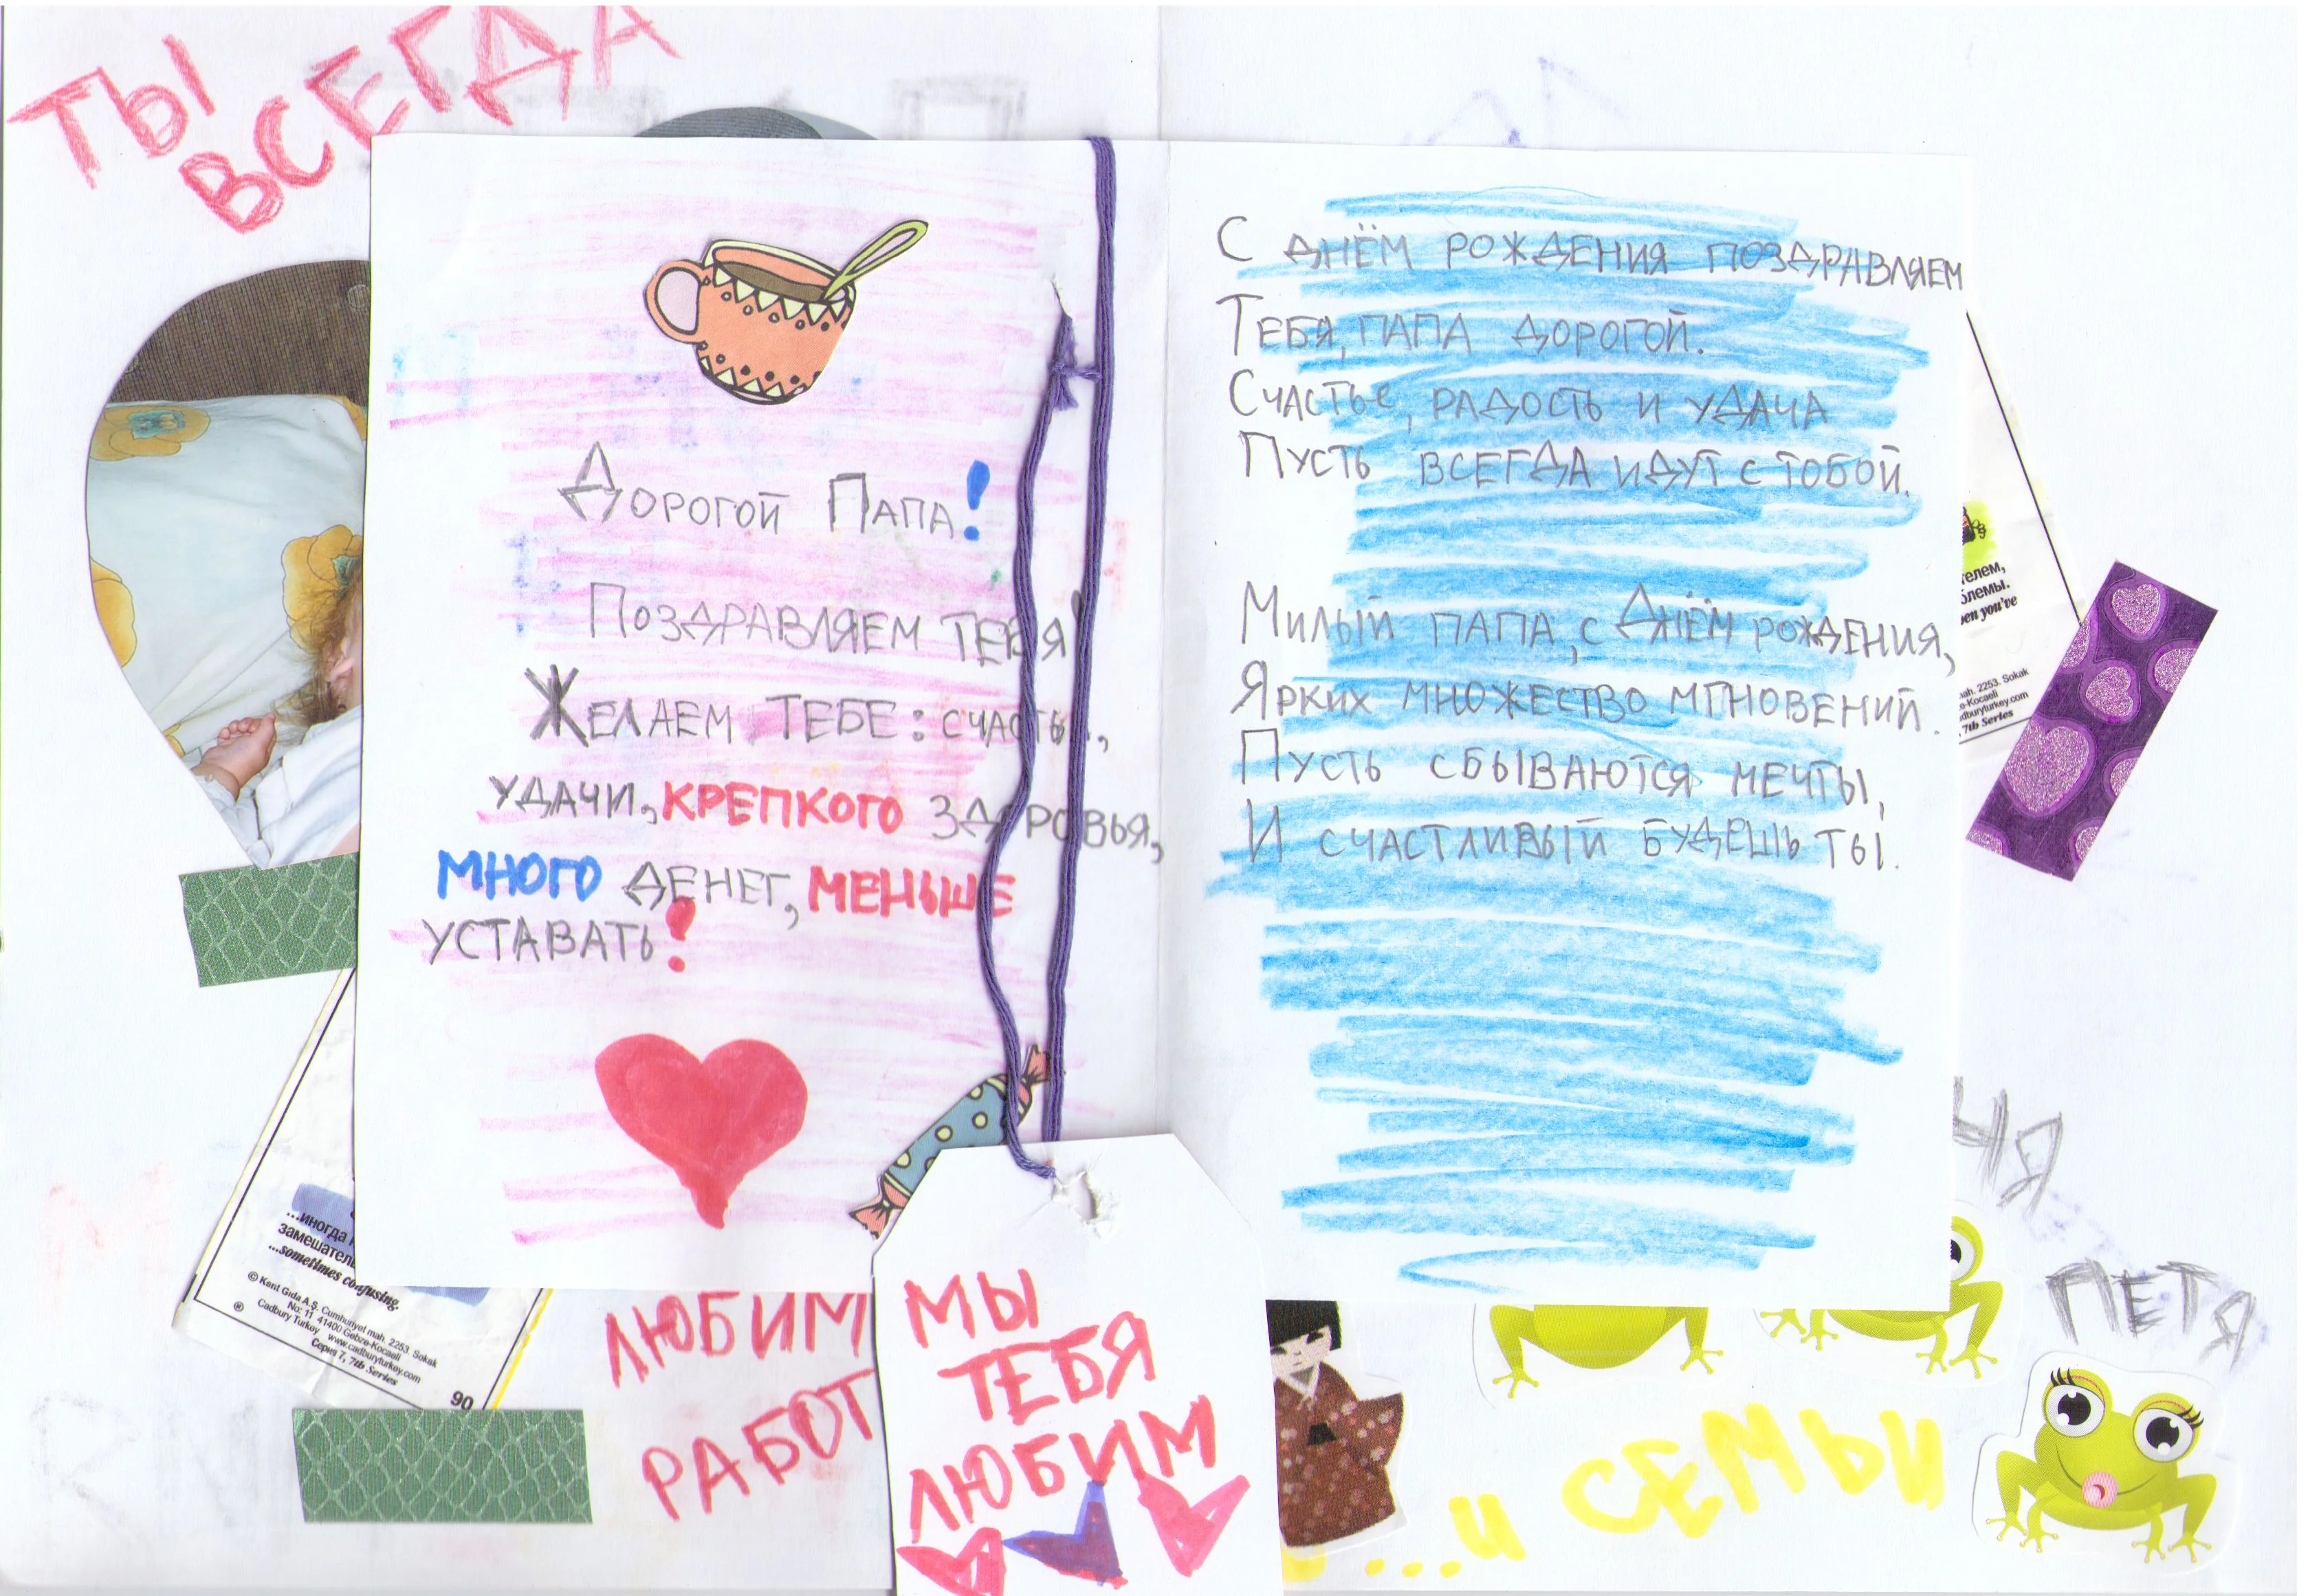 ТЫ
ВСЕГДА
Дорогой Папа!
Поздравляем тебя!
Желаем тебе: счастья,
удачи, крепкого здоровья,
много денег, меньше
уставать!
С днём рождения поздравляем
Тебя, папа дорогой.
Счастье, радость и удача
Пусть всегда идут с тобой.
Милый папа, с Днём рождения,
Ярких множество мгновений.
Пусть сбываются мечты,
И счастливый будешь ты.
телем,
блемы.
en you've
mah. 2253. Sokak
e-Kocaeli
dburyturkey.com
7th Series
...иногда
замешател
...sometimes confusing.
© Kent Gıda A.Ş. Cumhuriyet mah. 2253. Sokak
No: 11 41400 Gebze-Kocaeli
® Cadbury Turkey www.cadburyturkey.com
Серия 7, 7th Series
90
ЛЮБИМ
РАБОТ
МЫ
ТЕБЯ
ЛЮБИМ
ЧЯ
ПЕТЯ
...И СЕМЬИ